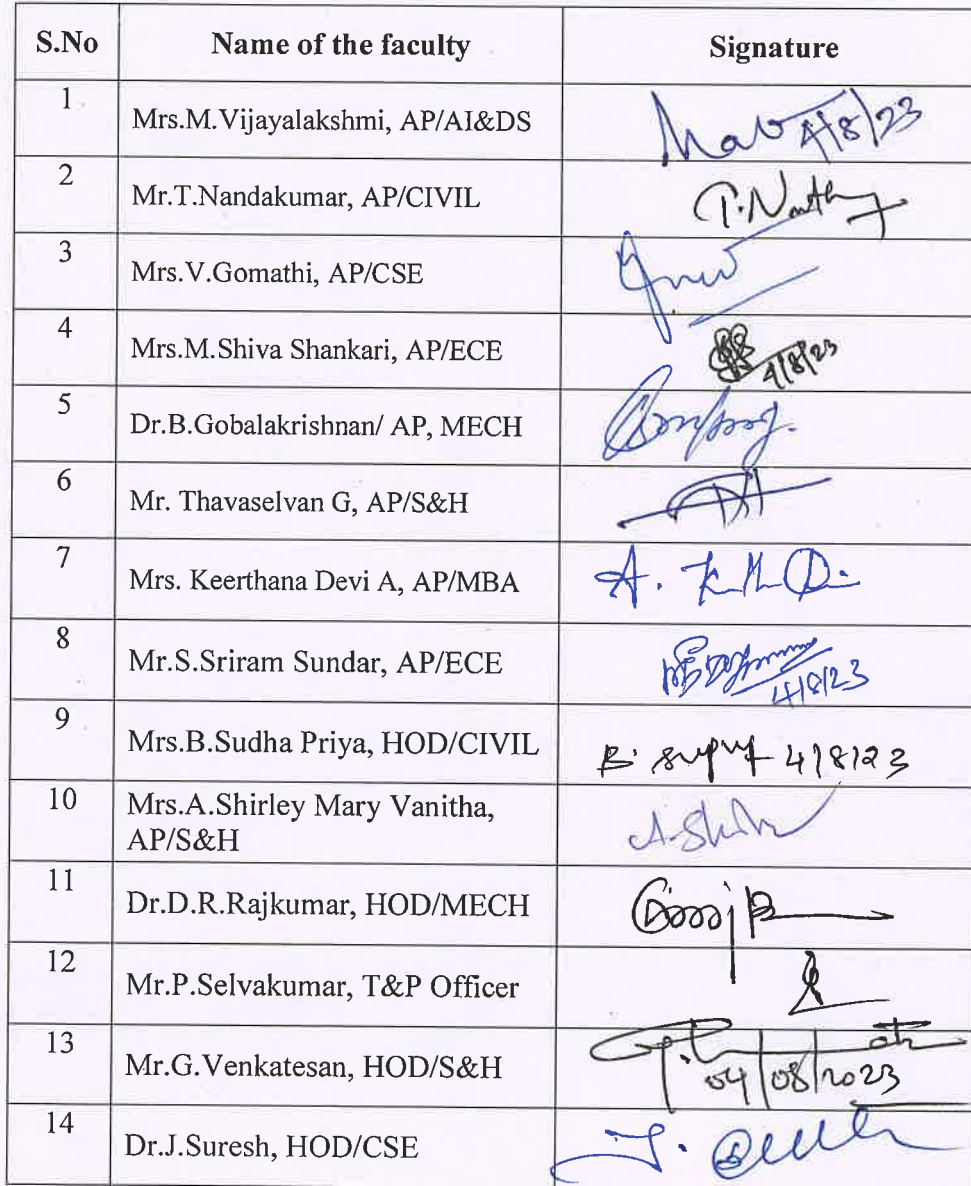 S.No Name of the faculty Signature
1 Mrs.M.Vijayalakshmi, AP/AI&DS 4/8/23
2 Mr.T.Nandakumar, AP/CIVIL
3 Mrs.V.Gomathi, AP/CSE
4 Mrs.M.Shiva Shankari, AP/ECE 4/8/23
5 Dr.B.Gobalakrishnan/ AP, MECH
6 Mr. Thavaselvan G, AP/S&H
7 Mrs. Keerthana Devi A, AP/MBA
8 Mr.S.Sriram Sundar, AP/ECE 4/8/23
9 Mrs.B.Sudha Priya, HOD/CIVIL 4/8/23
10 Mrs.A.Shirley Mary Vanitha,
AP/S&H
11 Dr.D.R.Rajkumar, HOD/MECH
12 Mr.P.Selvakumar, T&P Officer
13 Mr.G.Venkatesan, HOD/S&H 04/08/2023
14 Dr.J.Suresh, HOD/CSE